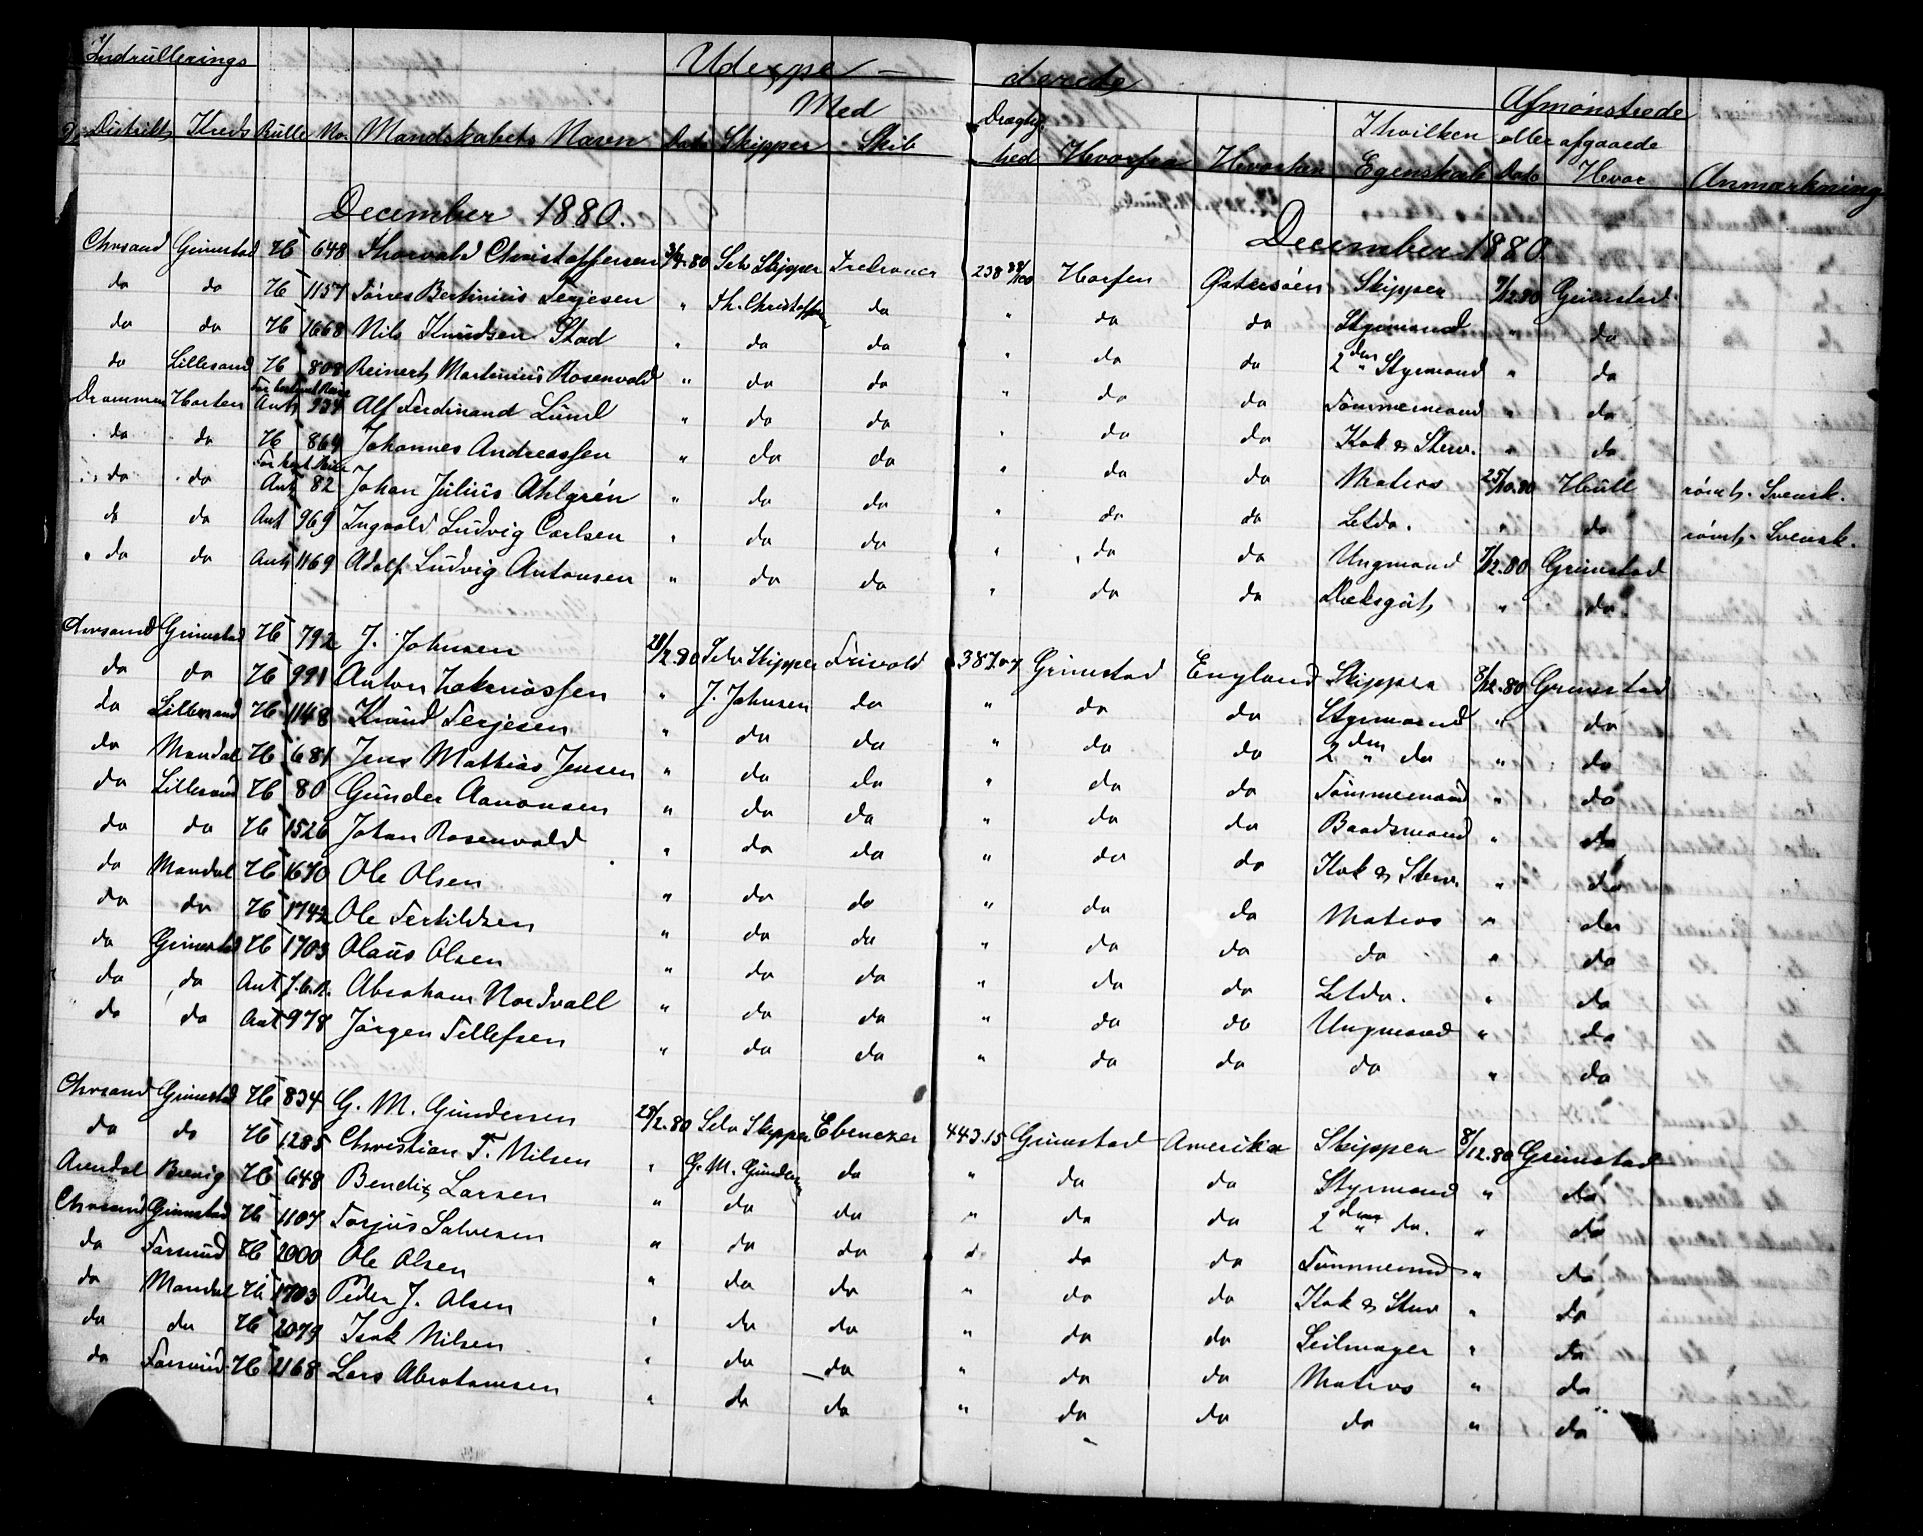 Indrullerings Udexpe – derede Afmønstrede
Med Drægtig- Ihvilken eller afgaaede
Distrikt Kreds Rulle No. Mandskabets Navn Dato Skipper Skib hed Hvorfra Hvorhen Egenskab Dato Hvor Anmærkning
December 1880. December 1880
Chrsand Grimstad H 648 Thorvald Christoffersen 3/4.80 Selv Skipper 238 88/100 Horten Østersöen Skipper 7/12.80 Grimstad
do do H 1157 Törres Bertinius Terjesen " Th. Christoffersen do " do do Styrmand do
do do H 1668 Nils Knudsen Stad " do do " do do 2den Styrmand " do
do Lillesand H 808 Reinert Martinius Rosenvold " do do " do do Tömmermand " do
Drammen Horten Ant 934 Alf Ferdinand Lund " do do " do do Kok & Stew. " do
do do H 869 Johannes Andreassen " do do " do do Matros 25/10.80 Hull römt. Svensk.
do do Ant 82 Johan Julius Ahlgrén " do do " do do Letdo. " do römt. Svensk.
do do Ant 969 Ingvald Ludvig Carlsen " do do " do do Ungmand 7/12.80 Grimstad
do do Ant 1169 Adolf Ludvig Antonsen " do do " do do Dæksgut " do
Chrsand Grimstad H 792 J. Johnsen 28/2.80 Selv Skipper Frivold 387.07 Grimstad England Skipper 8/12.80 Grimstad
do do H 991 Anton Zakriassen " J. Johnsen do " do do Styrmand " do
do Lillesand H 1148 Knud Terjesen " do do " do do 2den do " do
do Mandal H 681 Jens Mathias Jensen " do do " do do Tömmermand " do
do Lillesand H 80 Gunder Aanonsen " do do " do do Baadsmand " do
do do H 1526 Johan Rosenvold " do do " do do Kok & Stew. " do
do Mandal H 1670 Ole Olsen " do do " do do Matros " do
do do H 1742 Ole Terkildsen " do do " do do do " do
do Grimstad H 1703 Olaus Olsen " do do " do do Letdo. " do
do do Ant Abraham Nordvall " do do " do do Ungmand " do
do do Ant 978 Jörgen Tellefsen " do do " do do do " do
Chrsand Grimstad H 834 G. M. Gundersen 28/2.80 Selv Skipper Ebenezer 443.15 Grimstad Amerika Skipper 8/12.80 Grimstad
do do H 1285 Christian T. Nilsen " G. M. Gundersen do " do do Styrmand " do
Arendal Brevig H 648 Bendix Larsen " do do " do do 2den do. " do
Chrsand Grimstad H 1107 Torjus Salvesen " do do " do do Tömmermd " do
do Farsund H 2000 Ole Olsen " do do " do do Kok & Stew " do
do Mandal H 1703 Peder J. Olsen " do do " do do Seilmager " do
do do H 2079 Isak Nilsen " do do " do do Matros " do
do Farsund H 1168 Lars Abrahamsen " do do " do do do " do